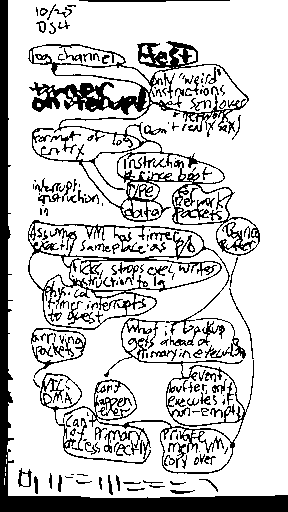 10/25
DS4
log channel
test
only "weird"
instructions
get sent over
network
timer
on interrupt
(don't really say)
format of log
entry
instruction #
since boot
type
data
for
network
packets
interrupt,
instruction,
in
Assumes VM has timer
exactly same place as P/B
Bounce
buffer
kicks, stops exec, writes
instruction to log
physical
timer interrupts
to guest
arriving
packets
What if backup
gets ahead of
primary in execution
NIC
DMA
Can't
happen
ever
event
buffer, only
executes if
non-empty
Can't
let primary
access directly
Private
mem VM,
copy over